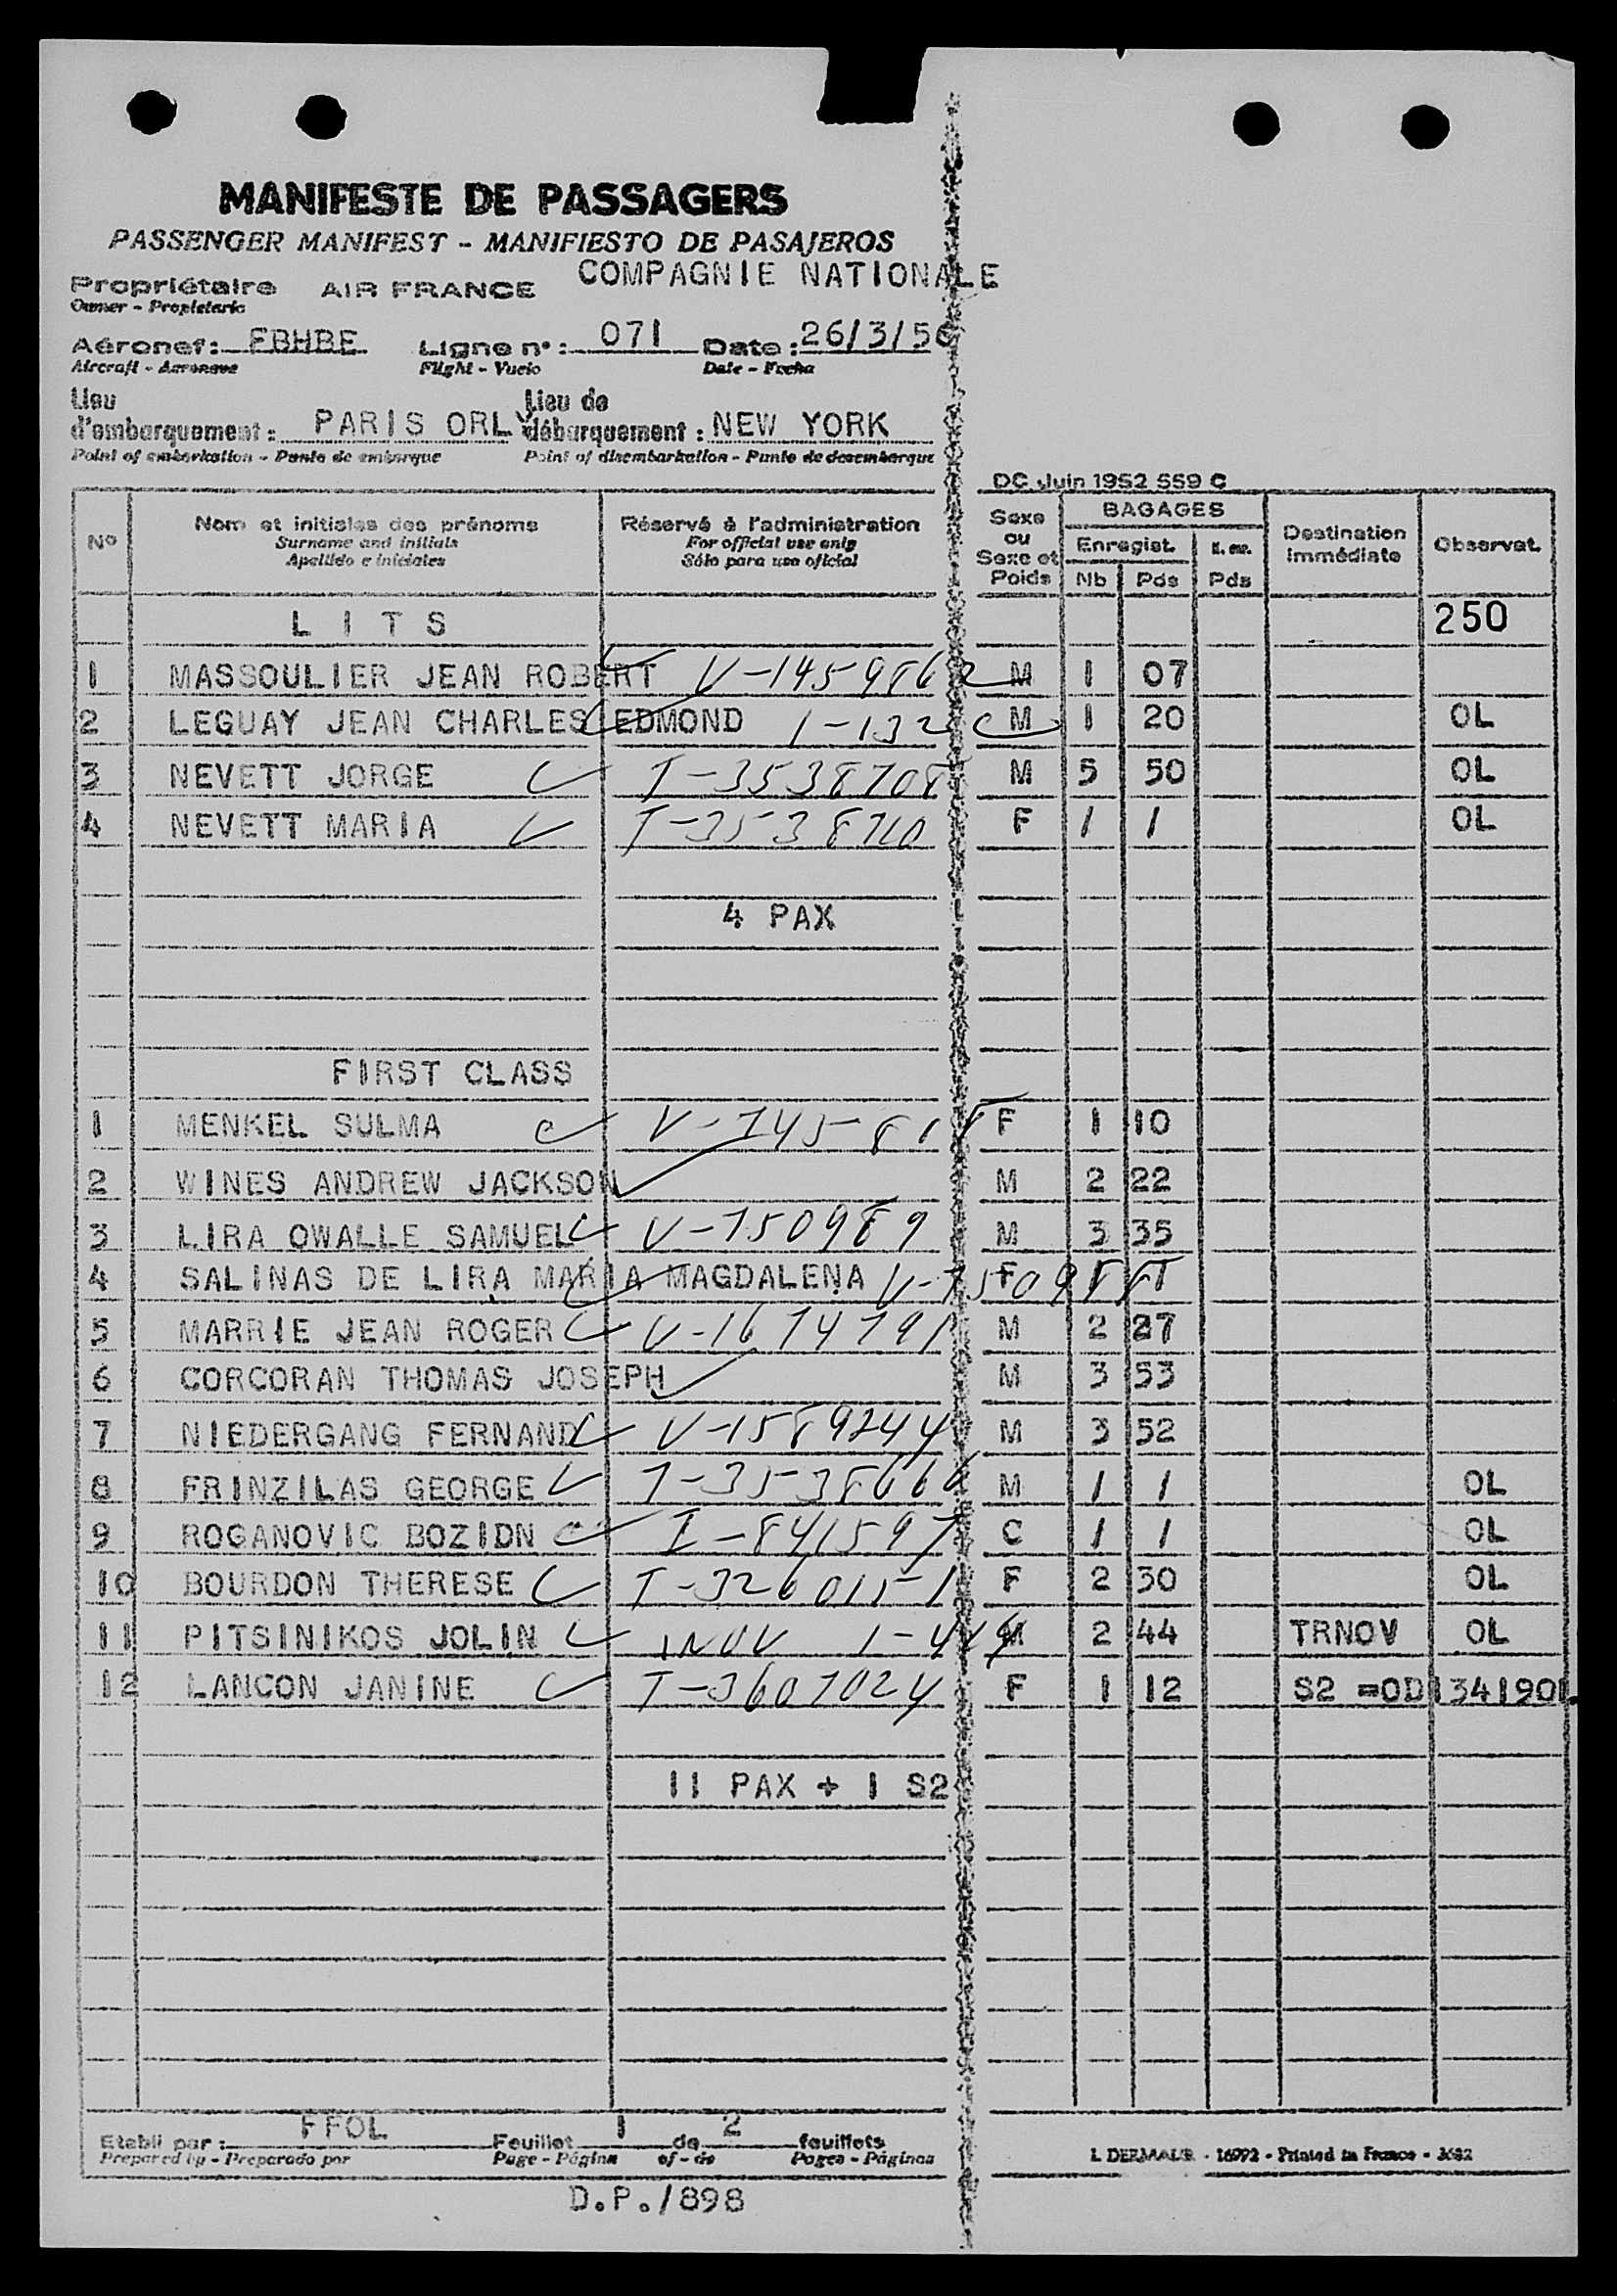 MANIFESTE DE PASSAGERS
PASSENGER MANIFEST - MANIFIESTO DE PASAJEROS
Propriétaire AIR FRANCE COMPAGNIE NATIONALE
Owner - Propietario
Aéronef: FBHBE Ligne n°: 071 Date: 26/3/56
Aircraft - Aeronave Flight - Vuelo Date - Fecha
Lieu Lieu de
d'embarquement: PARIS ORLY débarquement: NEW YORK
Point of embarkation - Punto de embarque Point of disembarkation - Punto de desembarque
DC Juin 1952 559 C
N° Nom et initiales des prénoms Réservé à l'administration Sexe ou Sexe et Poids BAGAGES Destination immédiate Observat.
Surname and initials For official use only Enregist.
Apellido e iniciales Sólo para uso oficial Nb Pds Pds
L I T S 250
1 MASSOULIER JEAN ROBERT V-1459862 M 1 07
2 LEGUAY JEAN CHARLES EDMOND 1-132 M 1 20 OL
3 NEVETT JORGE T-3538708 M 5 50 OL
4 NEVETT MARIA T-3538710 F / / OL
4 PAX
FIRST CLASS
1 MENKEL SULMA F 1 10
2 WINES ANDREW JACKSON M 2 22
3 LIRA OWALLE SAMUEL V-750989 M 3 35
4 SALINAS DE LIRA MARIA MAGDALENA V-750988 F / /
5 MARRIE JEAN ROGER V-1674791 M 2 27
6 CORCORAN THOMAS JOSEPH M 3 53
7 NIEDERGANG FERNAND V-1589244 M 3 52
8 FRINZILAS GEORGE T-3538666 M / / OL
9 ROGANOVIC BOZIDN I-841597 C / / OL
10 BOURDON THERESE T-3260151 F 2 30 OL
11 PITSINIKOS JOLIN M 2 44 TRNOV OL
12 LANCON JANINE T-3607024 F 1 12 S2 =OD1341901.
11 PAX + 1 S2
Etabli par: FFOL Feuillet 1 de 2 feuillets
Prepared by - Preparado por Page - Página of - de Pages - Páginas
L. DERMAUR - 16992 - Printed in France - 3682
D.P./898